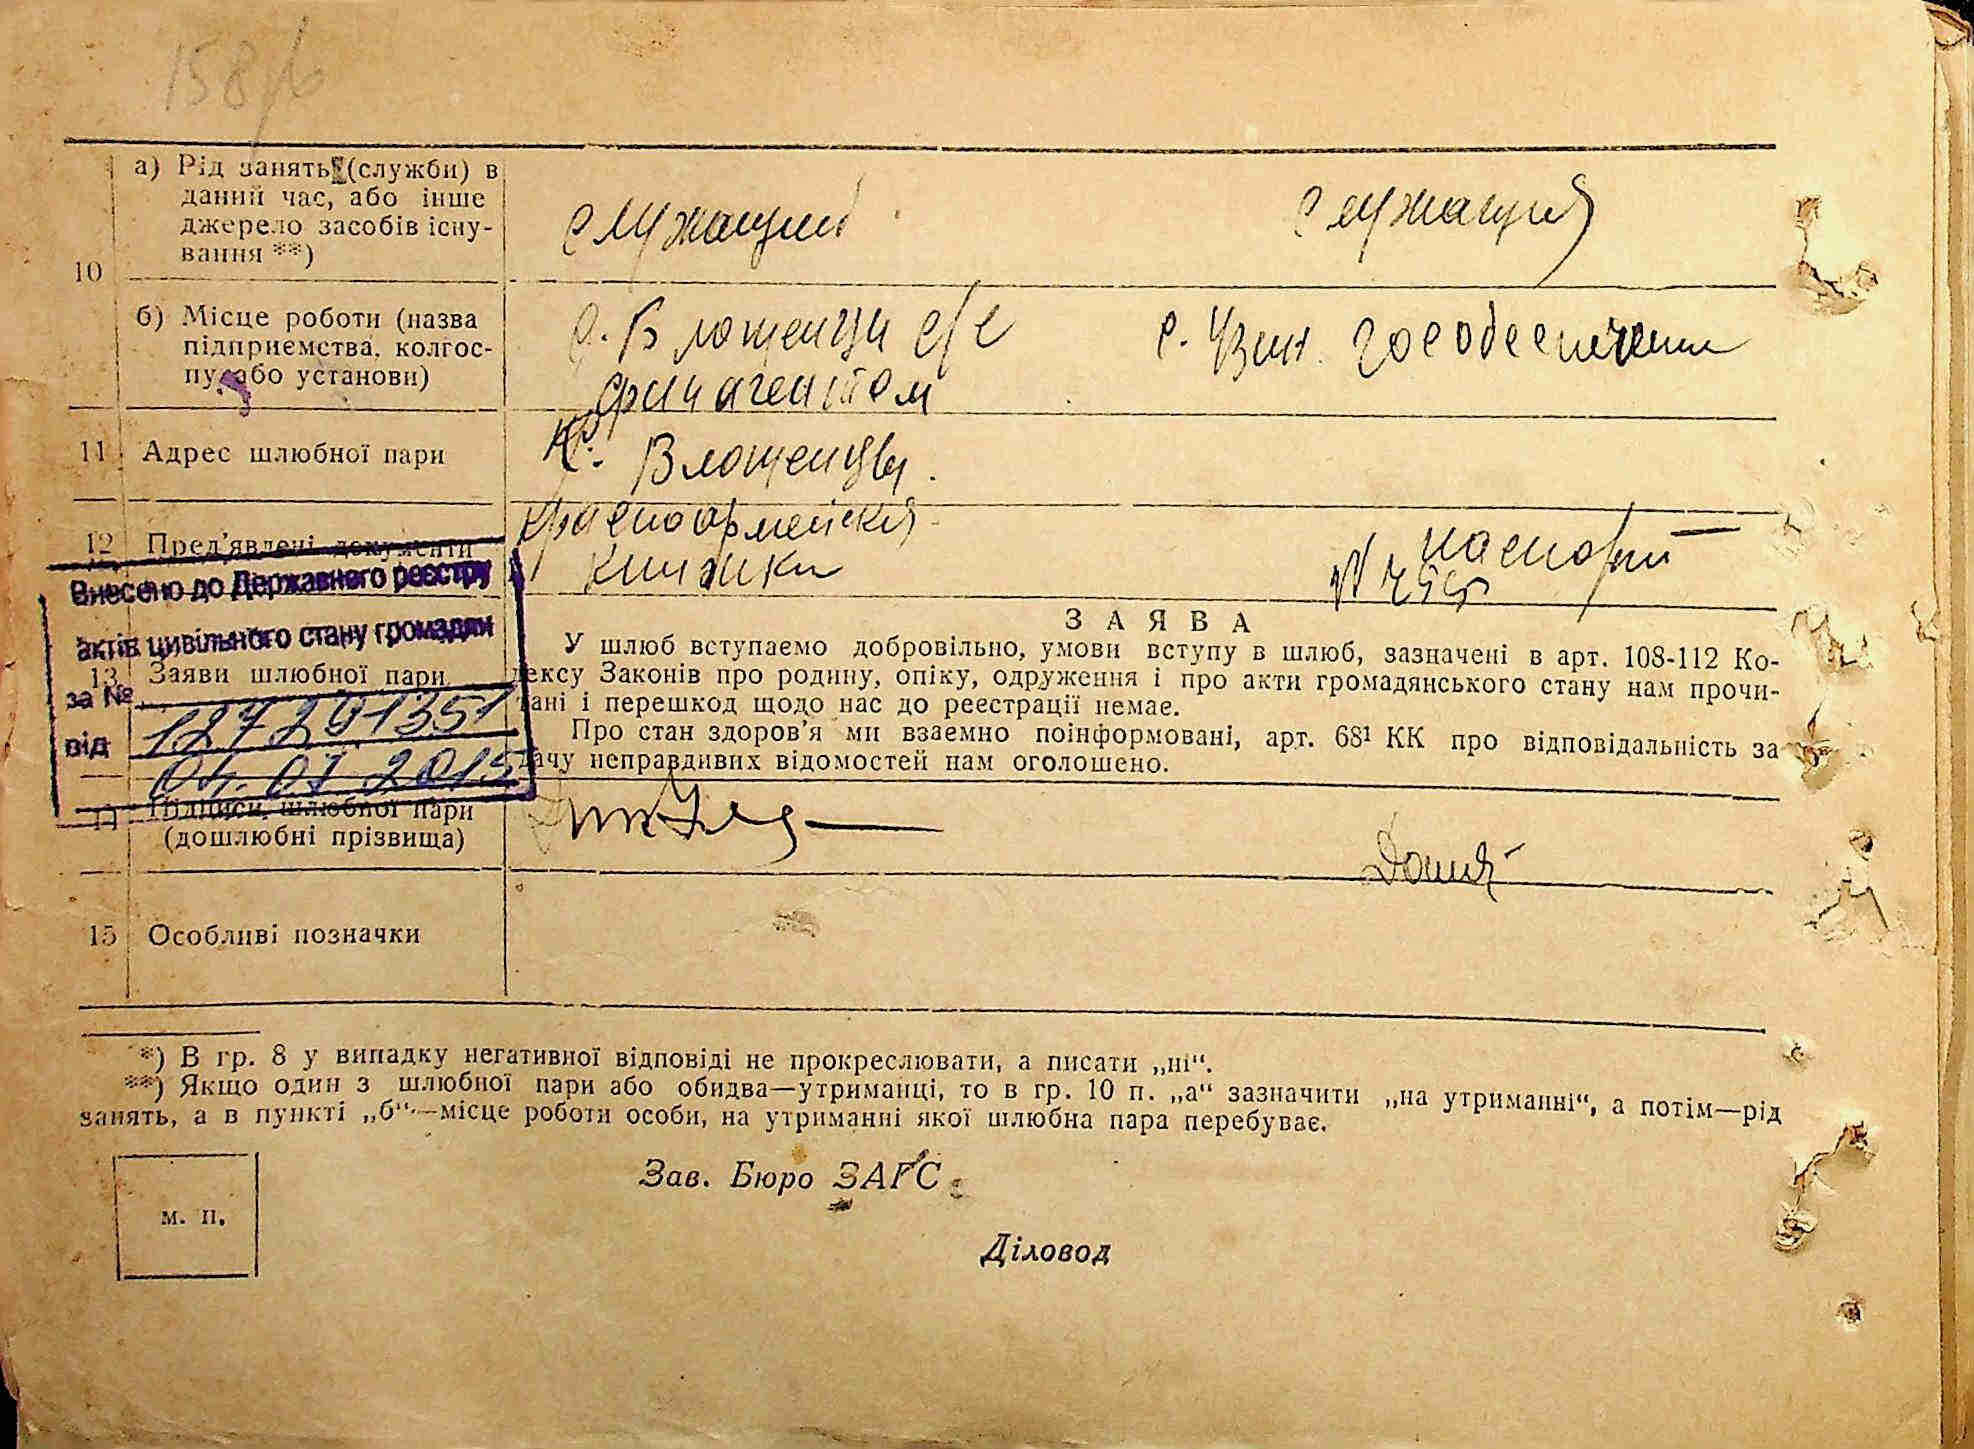 158/6
а) Рід занять (служби) в
данний час, або інше
джерело засобів існу-
вання **)
служащий
служащая
10
б) Місце роботи (назва
підприємства, колгос-
пу або установи)
с/с
финагентом
с. Узин
11 Адрес шлюбної пари
12 Пред'явлені документи
красноармейская
книжка
паспорт
Внесено до Державного реєстру
актів цивільного стану громадян
за №
127291351
від
ЗАЯВА
13 Заяви шлюбної пари
У шлюб вступаємо добровільно, умови вступу в шлюб, зазначені в арт. 108-112 Ко-
дексу Законів про родину, опіку, одруження і про акти громадянського стану нам прочи-
тані і перешкод щодо нас до реєстрації немає.
Про стан здоров'я ми взаємно поінформовані, арт. 68¹ КК про відповідальність за
дачу неправдивих відомостей нам оголошено.
14 Підписи шлюбної пари
(дошлюбні прізвища)
15 Особливі позначки
*) В гр. 8 у випадку негативної відповіді не прокреслювати, а писати „ні“.
**) Якщо один з шлюбної пари або обидва—утриманці, то в гр. 10 п. „а“ зазначити „на утриманні“, а потім—рід
занять, а в пункті „б“—місце роботи особи, на утриманні якої шлюбна пара перебуває.
Зав. Бюро ЗАГС
м. п.
Діловод